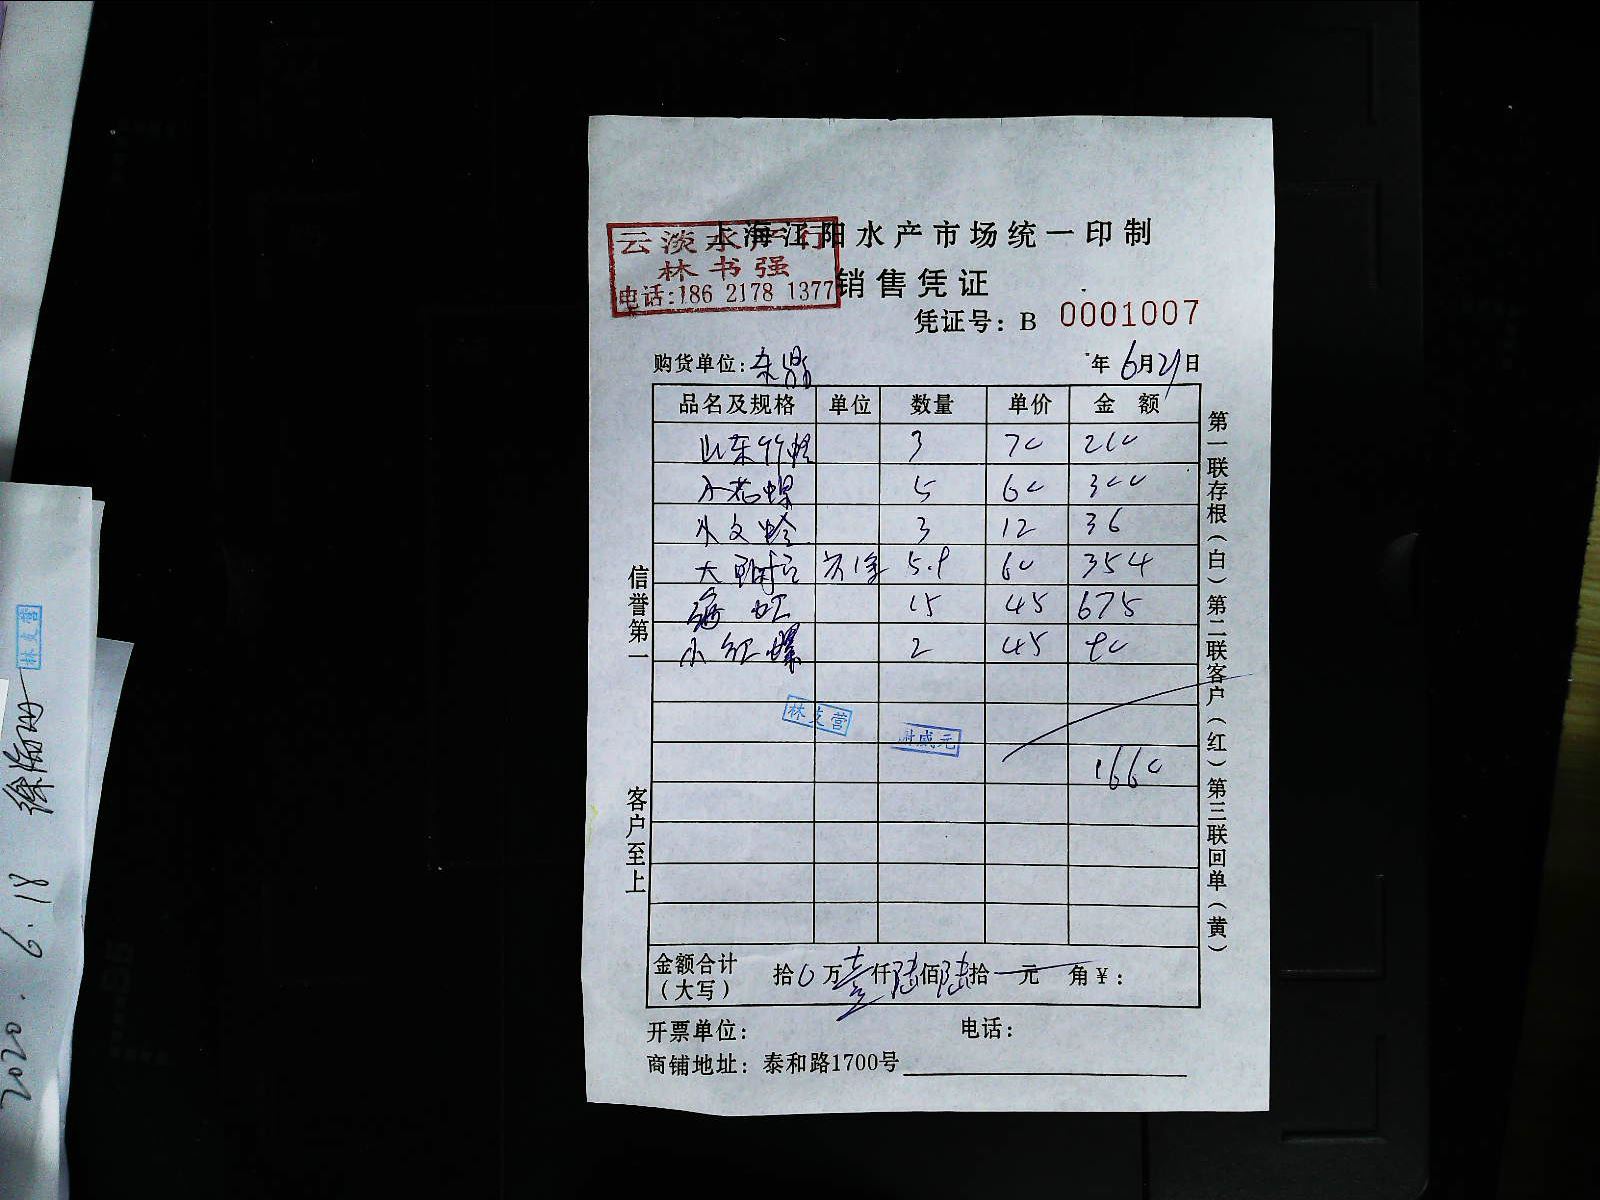 上海江阳水产市场统一印制
云淡水产行
林书强
电话:186 2178 1377
销售凭证
凭证号: B 0001007
购货单位:
年 6月21日
品名及规格 单位 数量 单价 金 额
山东竹蛏 3 70 210
5 60 300
文蛤 3 12 36
大 5.9 60 354
海虹 15 45 675
小红螺 2 45 90
林支营
1660
金额合计
(大写)
拾0万壹仟陆佰陆拾一元 角¥:
开票单位: 电话:
商铺地址: 泰和路1700号
信誉第一
客户至上
第一联存根(白)第二联客户(红)第三联回单(黄)
林支营
2020.6.18